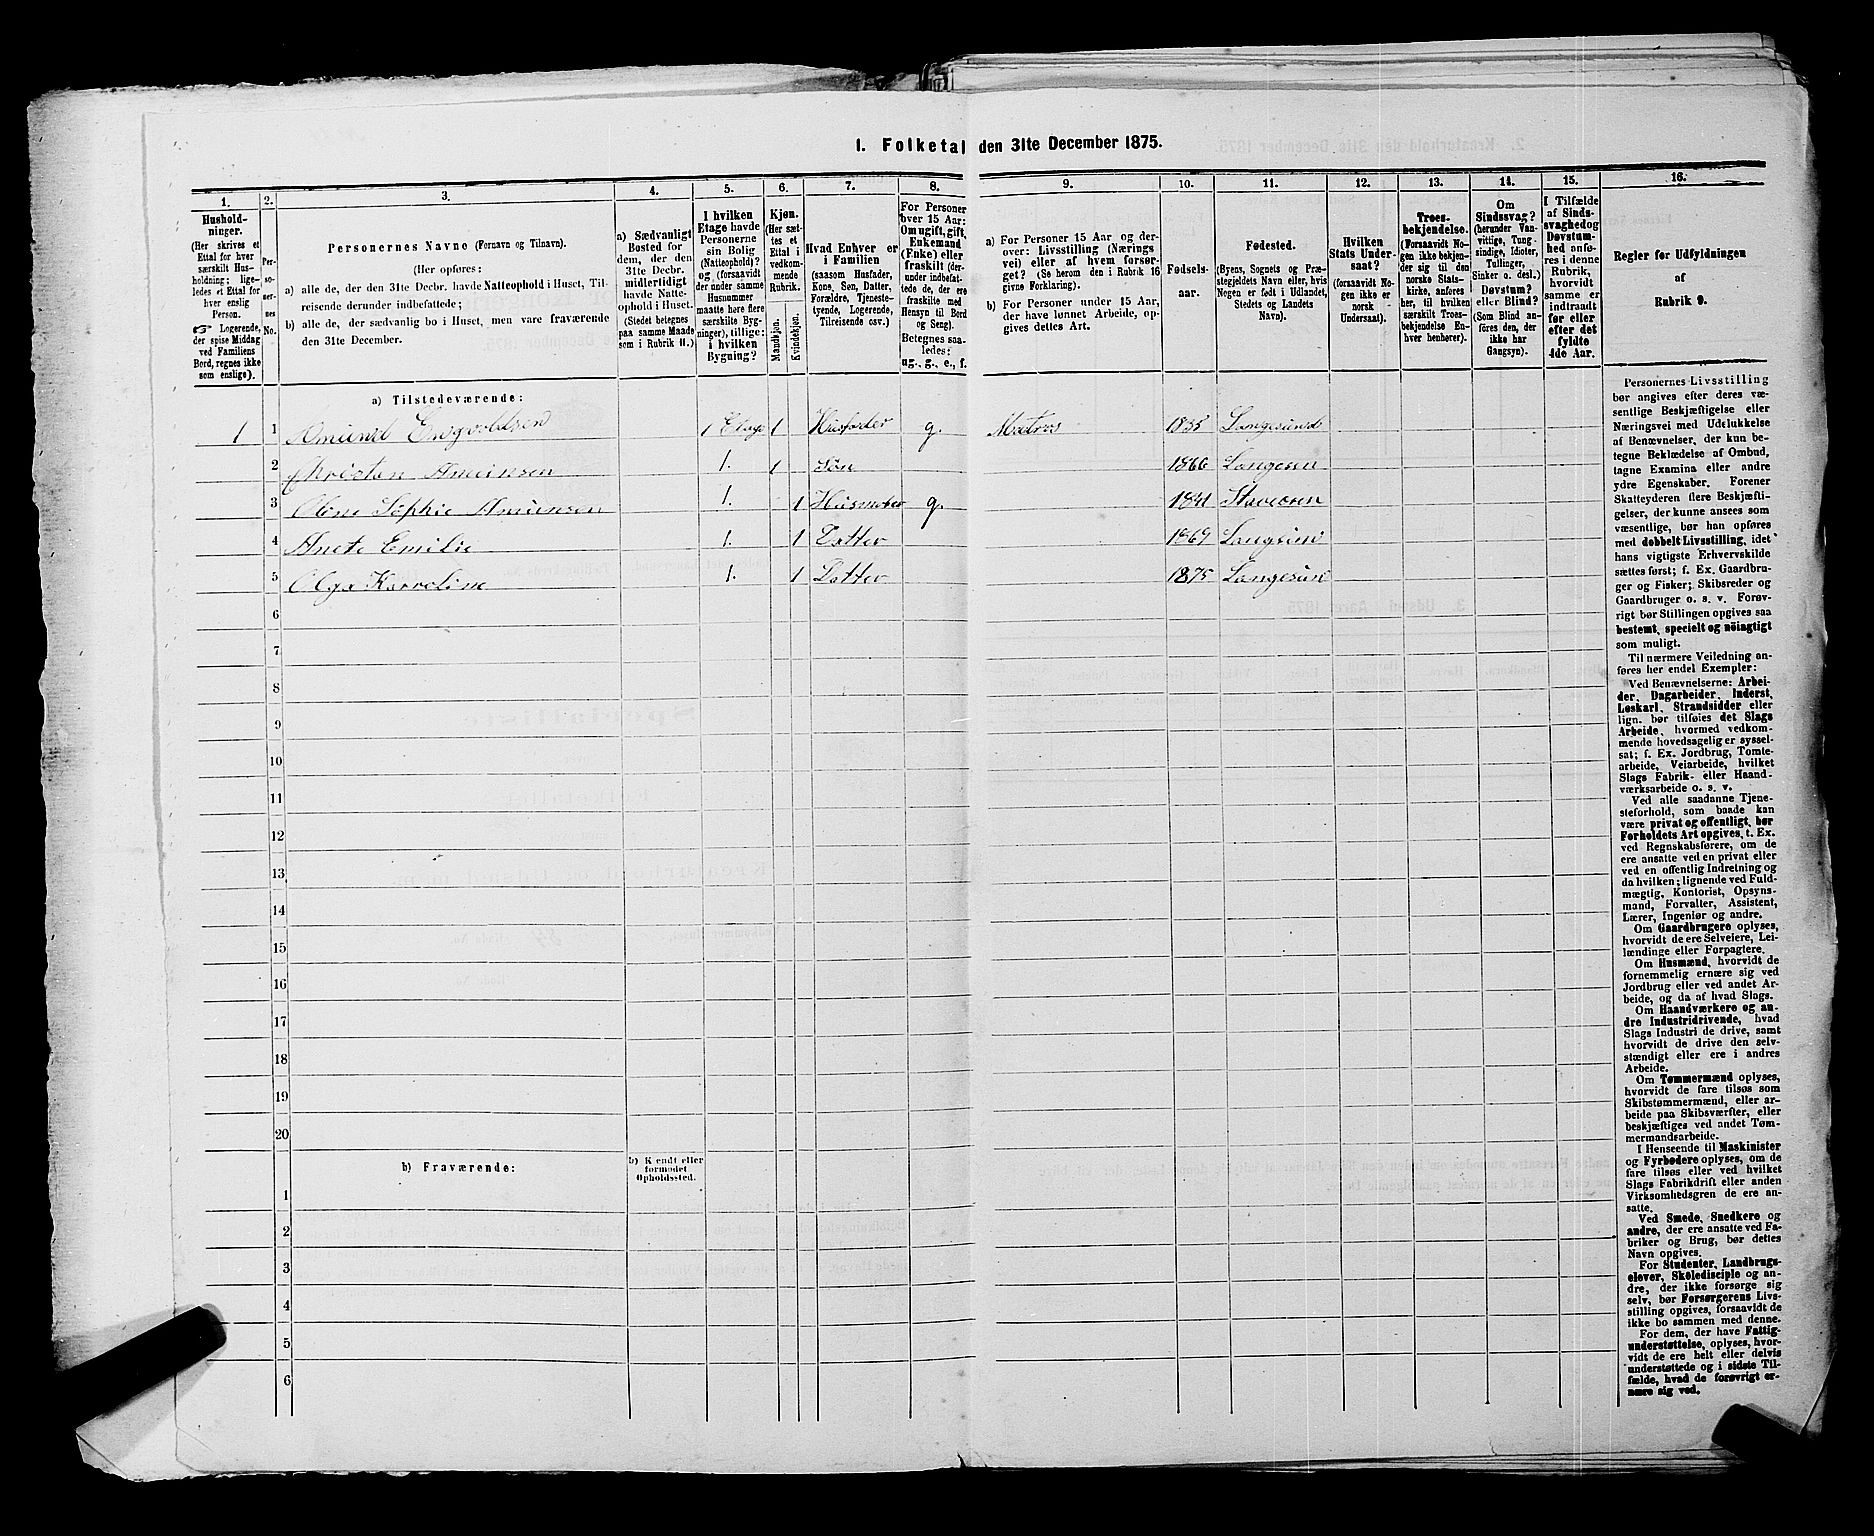 1. Folketal den 31te December 1875.
1.
2.
3.
4.
5.
6.
7.
8.
9.
10.
11.
12.
13.
14.
15.
16.
Hushold-
ninger.
(Her skrives et
Ettal for hver
særskilt Hus-
holdning; lige-
ledes et Ettal for
hver enslig
Person.
☞ Logerende,
der spise Middag
ved Familiens
Bord, regnes ikke
som enslige).
Per-
so-
ner-
nes
No.
Personernes Navne (Fornavn og Tilnavn).
(Her opføres:
a) alle de, der den 31te Decbr. havde Natteophold i Huset, Til-
reisende derunder indbefattede;
b) alle de, der sædvanlig bo i Huset, men vare fraværende
den 31te December.
a) Sædvanligt
Bosted for
dem, der den
31te Decbr.
midlertidigt
havde Natte-
ophold i Huset.
(Stedet betegnes
paa samme Maade
som i Rubrik 11.)
I hvilken
Etage havde
Personerne
sin Bolig
(Natteophold)?
og (forsaavidt
der under samme
Husnummer
maatte høre flere
særskilte Byg-
ninger), tillige:
i hvilken
Bygning?
Kjøn.
(Her sæt-
tes et
Ettal i
vedkom-
mende
Rubrik.
Mandkjøn.
Kvindekjøn.
Hvad Enhver er
i Familien
(saasom Husfader,
Kone, Søn, Datter,
Forældre, Tjeneste-
tyende, Logerende,
Tilreisende osv.)
For Personer
over 15 Aar:
Om ugift, gift,
Enkemand
(Enke) eller
fraskilt (der-
under indbefat-
tede de, der ere
fraskilte med
Hensyn til Bord
og Seng).
Betegnes saa-
ledes:
ug., g., e., f.
a) For Personer 15 Aar og der-
over: Livsstilling (Nærings
vei) eller af hvem forsør-
get? (Se herom den i Rubrik 16
givne Forklaring).
b) For Personer under 15 Aar,
der have lønnet Arbeide, op-
gives dettes Art.
Fødsels-
aar.
Fødested.
(Byens, Sognets og Præ-
stegjeldets Navn eller, hvis
Nogen er født i Udlandet,
Stedets og Landets
Navn).
Hvilken
Stats Under-
saat?
(forsaavidt No-
gen ikke er
norsk
Undersaat).
Troes-
bekjendelse.
(Forsaavidt No-
gen ikke bekjen-
der sig til den
norske Stats-
kirke, anføres
her, til hvilken
særskilt Troes-
bekjendelse En-
hver henhører).
Om
Sindssvag?
(herunder Van-
vittige, Tung-
sindige, Idioter,
Tullinger,
Sinker o. desl.)
Døvstum?
eller Blind?
(Som Blind an-
føres den, der
ikke har
Gangsyn).
I Tilfælde
af Sinds-
svaghed og
Døvstum-
hed anfø-
res i denne
Rubrik,
hvorvidt
samme er
indtraadt
før eller
efter det
fyldte
4de Aar.
Regler for Udfyldningen
af
Rubrik 9.
a) Tilstedeværende:
1 1 Amund Engvoldsen 1 Etage 1 Husfader g. Matros 1835 Langesund
2 Christen Amunsen 1. 1 Søn 1866 Langesun
3 Oline Sophie Amunsen 1. 1 Husmoder g. 1841 Staværen
4 Anete Emilie 1. 1 Datter 1869 Langsund
5 Olga Karoline 1. 1 Datter 1875 Langesun
6
7
8
9
10
11
12
13
14
15
16
17
18
19
20
b) Fraværende:
b) Kjendt eller
formodet
Opholdssted.
1
2
3
4
5
6
Personernes Livsstilling
bør angives efter deres væ-
sentlige Beskjæftigelse eller
Næringsvei med Udelukkelse
af Benævnelser, der kun be-
tegne Beklædelse af Ombud,
tagne Examina eller andre
ydre Egenskaber. Forener
Skatteyderen flere Beskjæfti-
gelser, der kunne ansees som
væsentlige, bør han opføres
med dobbelt Livsstilling, idet
hans vigtigste Erhvervskilde
sættes først; f. Ex. Gaardbru-
ger og Fisker; Skibsreder og
Gaardbruger o. s. v. Forøv-
rigt bør Stillingen opgives saa
bestemt, specielt og nöiagtigt
som muligt.
Til nærmere Veiledning an-
føres her endel Exempler:
Ved Benævnelserne: Arbei-
der, Dagarbeider, Inderst,
Løskarl, Strandsidder eller
lign. bør tilføies det Slags
Arbeide, hvormed vedkom-
mende hovedsagelig er syssel-
sat; f. Ex. Jordbrug, Tomte-
arbeide, Veiarbeide, hvilket
Slags Fabrik- eller Haand-
værksarbeide o. s. v.
Ved alle saadanne Tjene-
steforhold, som baade kan
være privat og offentligt, bør
Forholdets Art opgives, t. Ex.
ved Regnskabsførere, om de
ere ansatte ved en privat eller
ved en offentlig Indretning og
da hvilken; lignende ved Fuld-
mægtig, Kontorist, Opsyns-
mand, Forvalter, Assistent,
Lærer, Ingeniør og andre.
Om Gaardbrugere oplyses,
hvorvidt de ere Selveiere, Lei-
lændinge eller Forpagtere.
Om Husmænd, hvorvidt de
fornemmelig ernære sig ved
Jordbrug eller ved andet Ar-
beide, og da af hvad Slags.
Om Haandværkere og an-
dre Industridrivende, hvad
Slags Industri de drive, samt
hvorvidt de drive den selv-
stændigt eller ere i andres
Arbeide.
Om Tømmermænd oplyses,
hvorvidt de fare tilsøs som
Skibstømmermænd, eller ar-
beide paa Skibsværfter, eller
beskjæftiges ved andet Tøm-
mermandsarbeide.
I Henseende til Maskinister
og Fyrbødere oplyses, om de
fare tilsøs eller ved hvilket
Slags Fabrikdrift eller anden
Virksomhedsgren de ere an-
satte.
Ved Smede, Snedkere og
andre, der ere ansatte ved Fa-
briker og Brug, bør dettes
Navn opgives.
For Studenter, Landbrugs-
elever, Skoledisciple og an-
dre, der ikke forsørge sig
selv, bør Forsørgerens Livs-
stilling opgives, forsaavidt de
ikke bo sammen med denne.
For dem, der have Fattig-
understøttelse, oplyses, hvor-
vidt de ere helt eller delvis
understøttede og i sidste Til-
fælde, hvad de forøvrigt er-
nære sig ved.